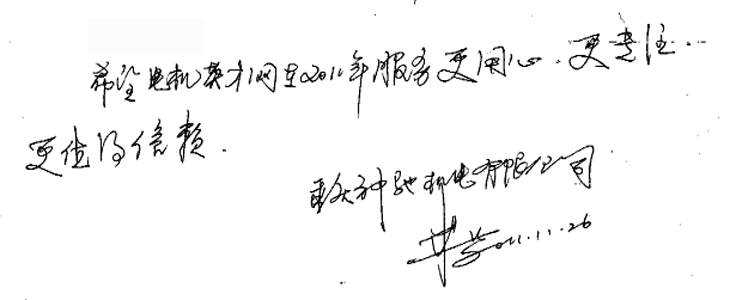 希望电机英才网在2011年服务更用心、更专注…
更值得信赖.
神驰机电有限公司
2011.11.26